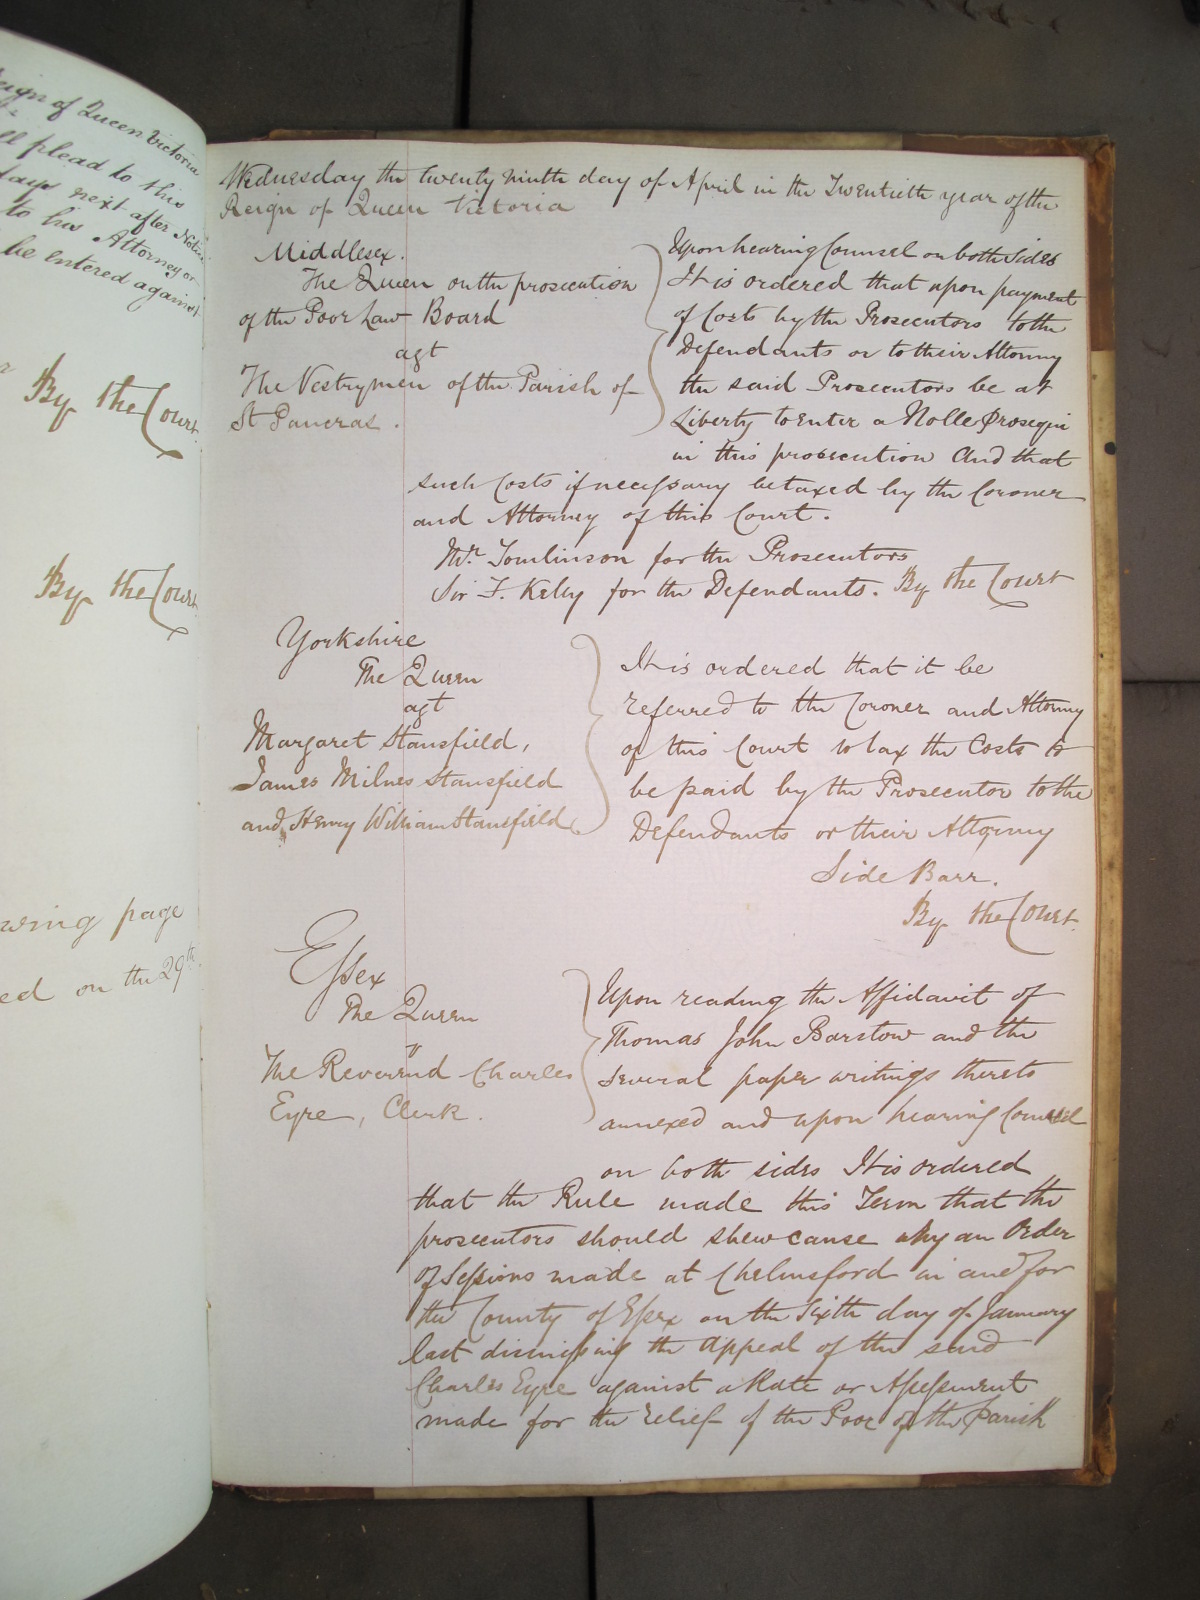 eign of Queen Victoria
ll plead to this
days next after Notice
to his Attorney or
be entered against
By the Court.
By the Court.
wing page
ed on the 29th.
Wednesday the twenty ninth day of April in the Twentieth year of the
Reign of Queen Victoria
Middlesex.
The Queen on the prosecution
of the Poor Law Board
agt
The Vestrymen of the Parish of
St Pancras.
Upon hearing Counsel on both sides
It is ordered that upon payment
of Costs by the Prosecutors to the
Defendants or to their Attorney
the said Prosecutors be at
Liberty to enter a Nolle Prosequi
in this prosecution And that
such Costs if necessary be taxed by the Coroner
and Attorney of this Court.
Mr. Tomlinson for the Prosecutors
Sir F. Kelly for the Defendants. By the Court
Yorkshire
The Queen
agt
Margaret Stansfield,
James Milnes Stansfield
and Henry William Stansfield
It is ordered that it be
referred to the Coroner and Attorney
of this Court to tax the Costs to
be paid by the Prosecutor to the
Defendants or their Attorney
Side Barr.
By the Court.
Essex
The Queen
"
The Reverend Charles
Eyre, Clerk.
Upon reading the Affidavit of
Thomas John Barstow and the
several paper writings thereto
annexed and upon hearing Counsel
on both sides It is ordered
that the Rule made this Term that the
prosecutors should shew cause why an Order
of Sessions made at Chelmsford in and for
the County of Essex on the Sixth day of January
last dismissing the Appeal of the said
Charles Eyre against a Rate or Assessment
made for the relief of the Poor of the Parish